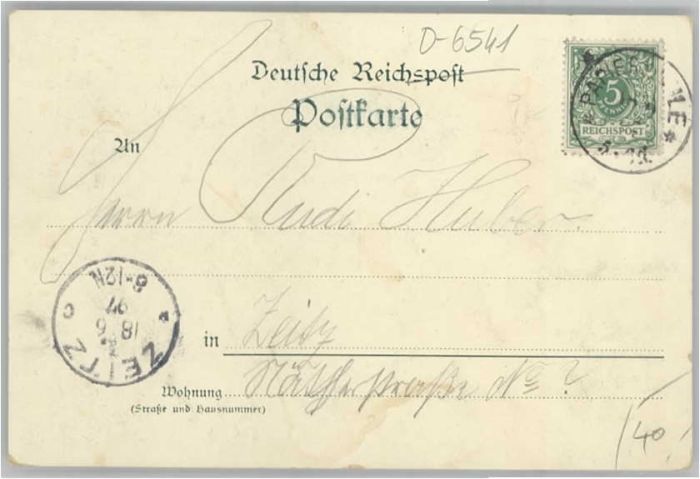 D-6541
Deutsche Reichspost
Postkarte
5
REICHSPOST
An
Herrn Rudi Huber
8-12N
97
18 6
ZEITZ
in Zeitz
Wohnung
(Straße und Hausnummer)
straße No 7
40